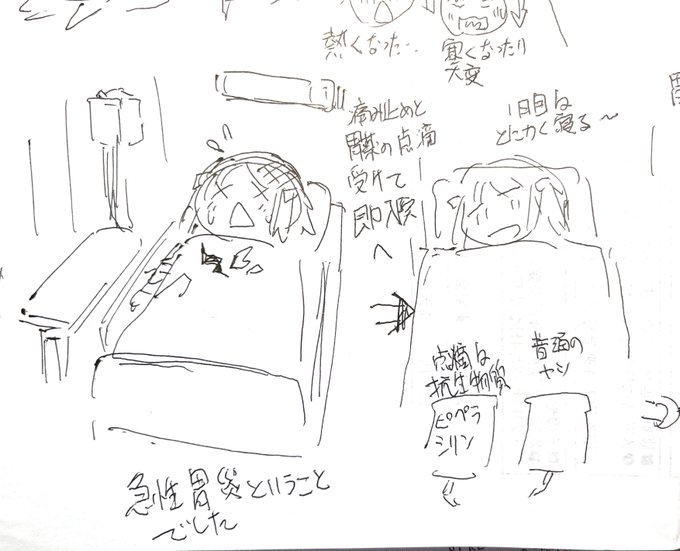 熱くなった…
寒くなったり
大変
痛み止めと
胃薬の点滴
受けて
即入院
へ
1日目は
とにかく寝る〜
点滴は
抗生物質
ピペラ
シリン
普通の
ヤツ
急性胃炎ということ
でした